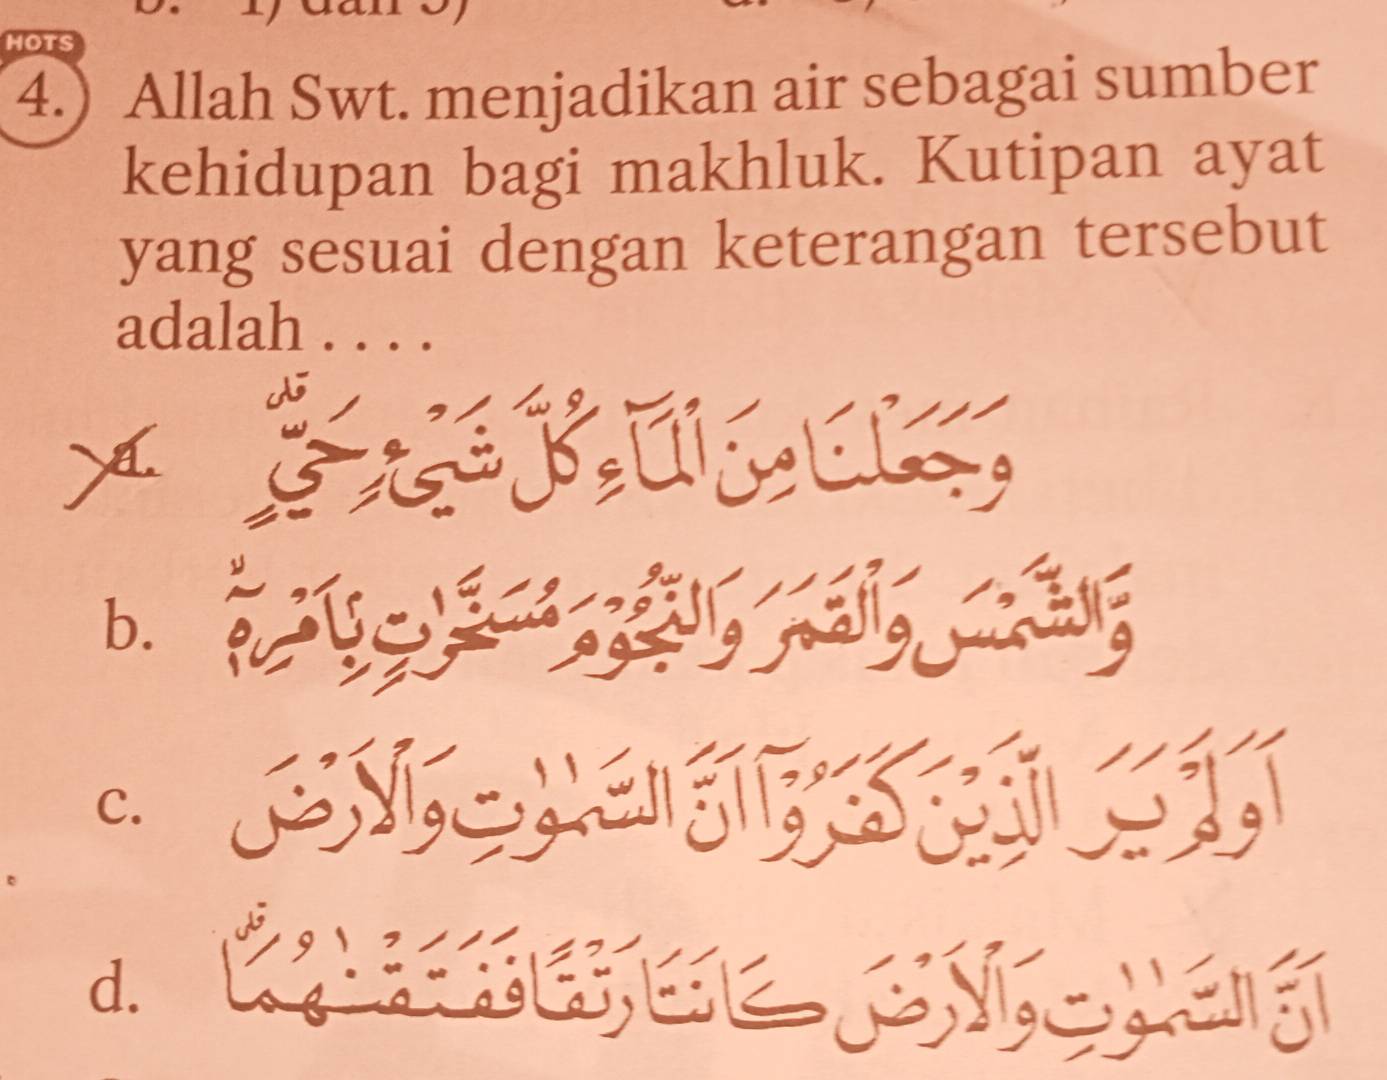 HOTS
4. Allah Swt. menjadikan air sebagai sumber
kehidupan bagi makhluk. Kutipan ayat
yang sesuai dengan keterangan tersebut
adalah . . . .
a. وَجَعَلْنَا مِنَ الْمَاۤءِ كُلَّ شَيْءٍ حَيٍّۗ
b. وَّالشَّمْسَ وَالْقَمَرَ وَالنُّجُوْمَ مُسَخَّرٰتٍۢ بِاَمْرِهٖٓ
c. اَوَلَمْ يَرَ الَّذِيْنَ كَفَرُوْٓا اَنَّ السَّمٰوٰتِ وَالْاَرْضَ
d. اَنَّ السَّمٰوٰتِ وَالْاَرْضَ كَانَتَا رَتْقًا فَفَتَقْنٰهُمَاۗ